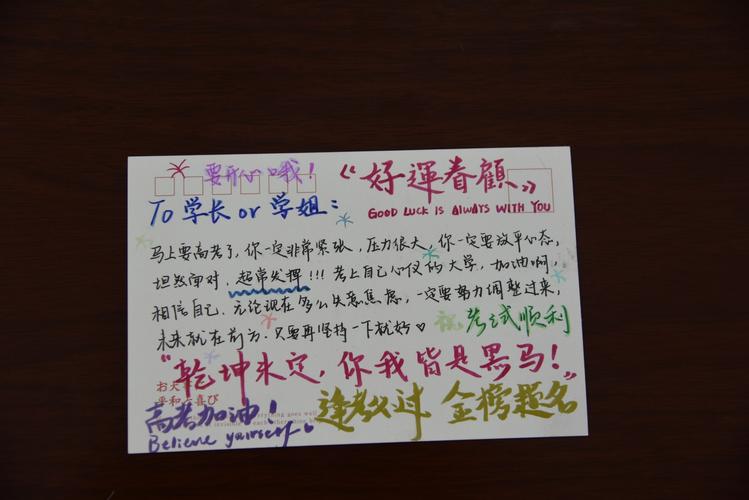 要开心哦！
《好運眷顧》
GOOD LUCK IS ALWAYS WITH YOU
To 学长 or 学姐：
马上要高考了，你一定非常紧张，压力很大，你一定要放平心态，
坦然面对，超常发挥!!! 考上自己心仪的大学，加油啊，
相信自己．无论现在多么失意焦虑，一定要努力调整过来，
未来就在前方．只要再坚持一下就好♡
祝考试顺利
“乾坤未定，你我皆是黑马！”
平和 喜び
高考加油！
Believe yourself
逢考必过 金榜题名